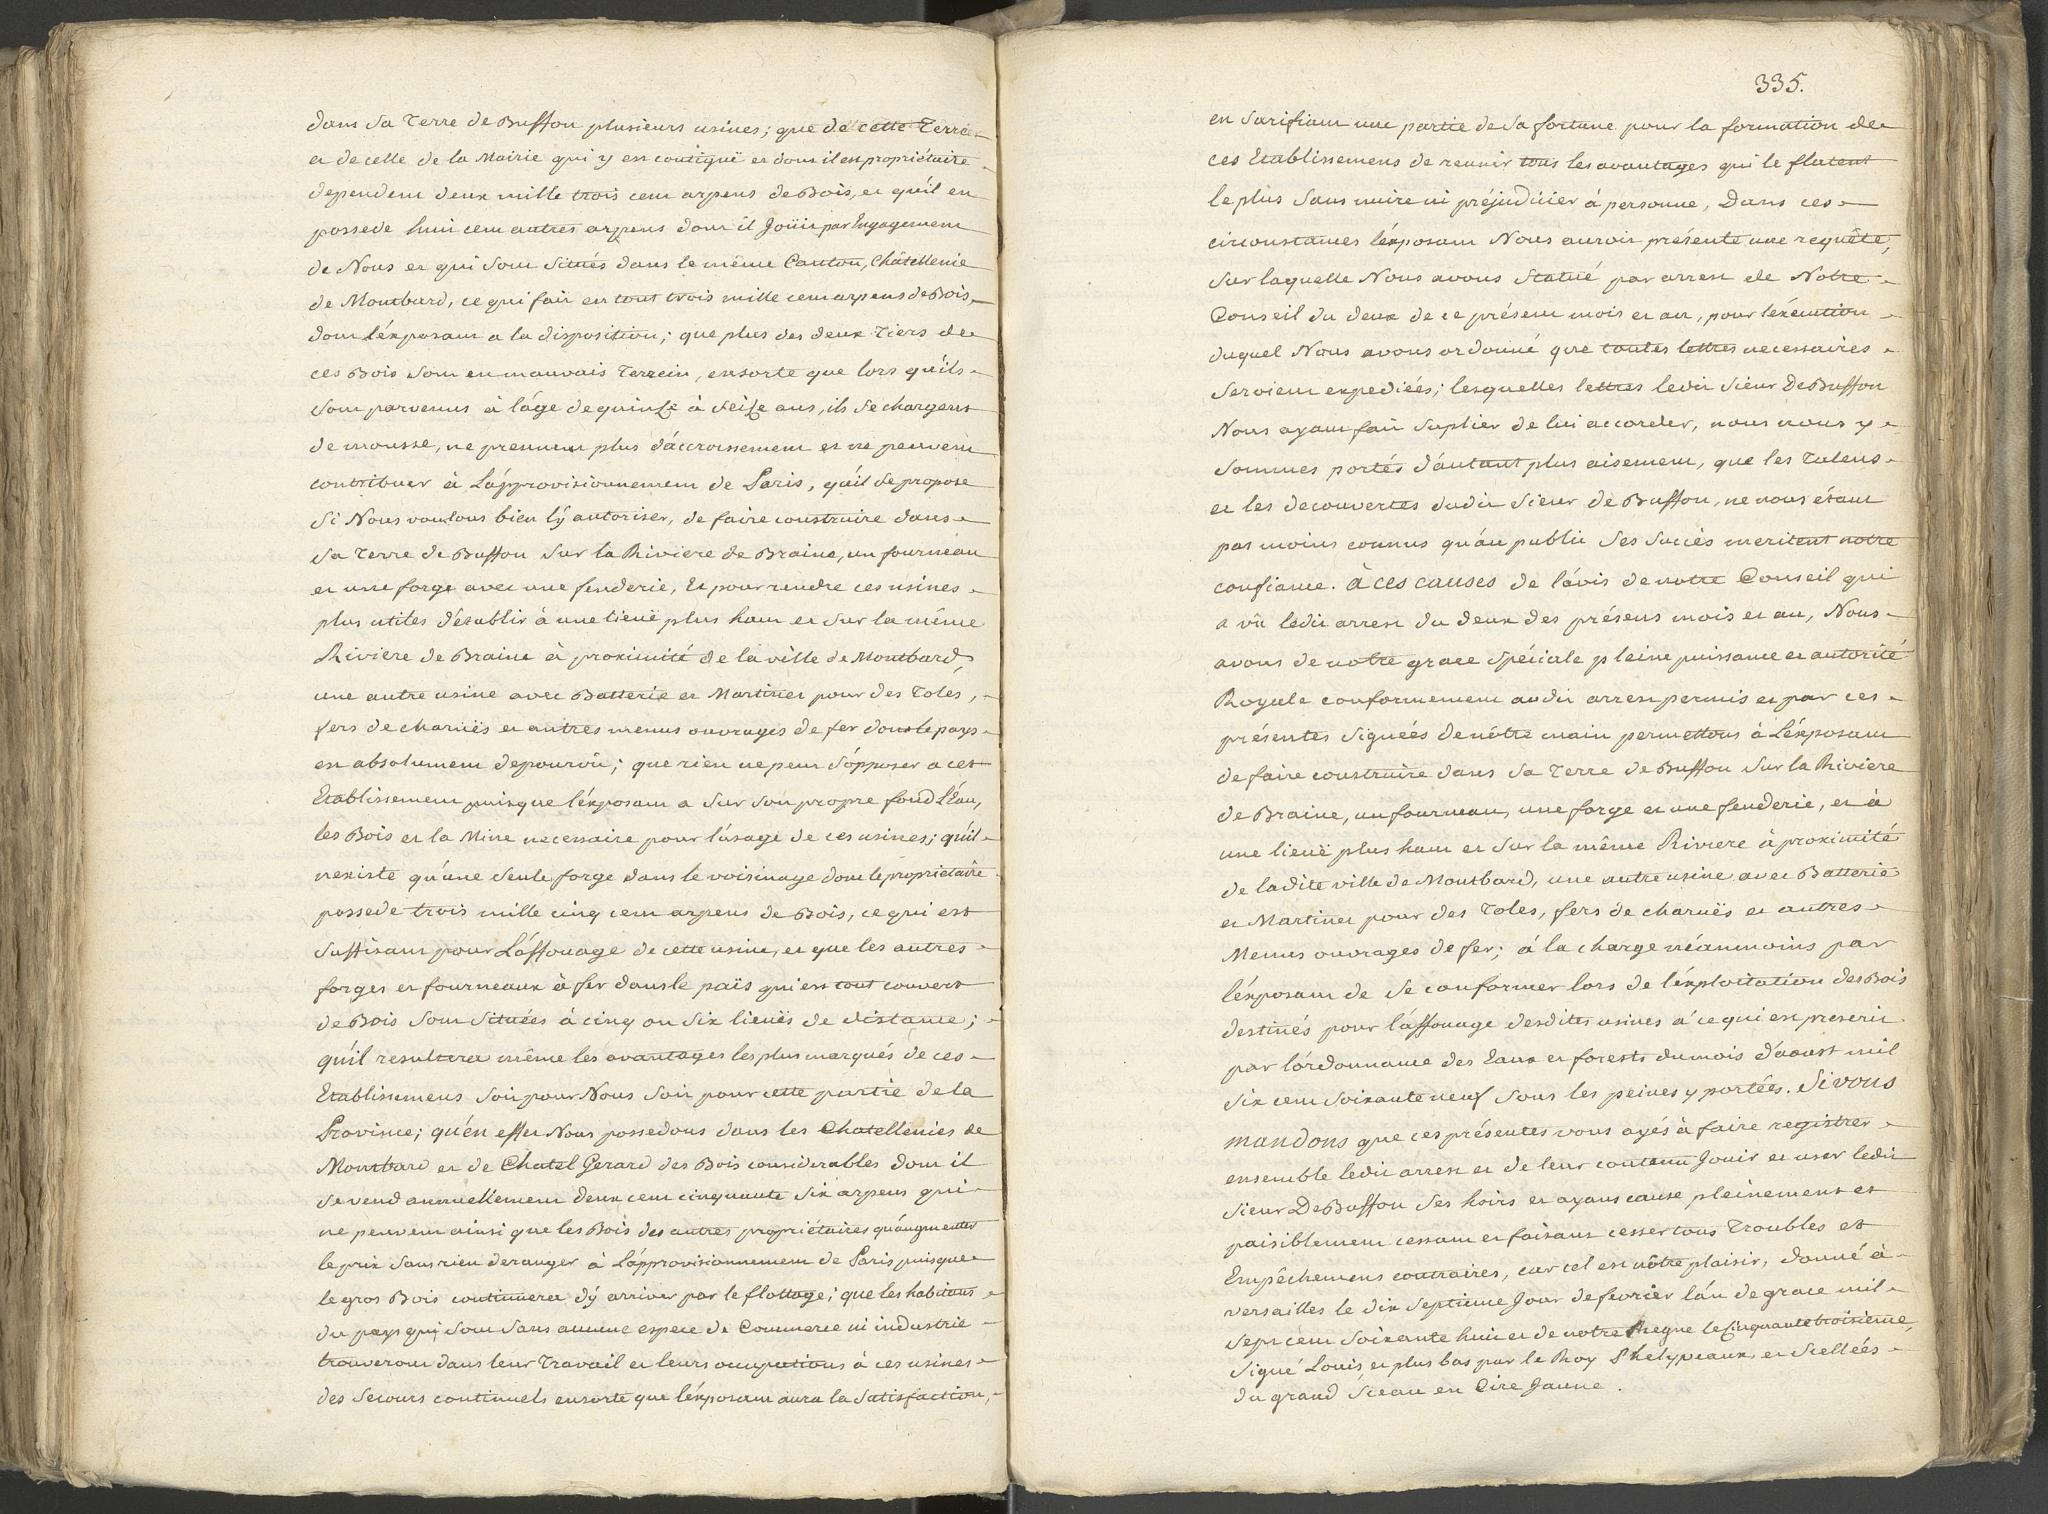 dans sa Terre de Buffon plusieurs usines; que de cette Terre
et de celle de la Mairie qui y est contiguë et dont il est propriétaire
dependent deux mille trois cent arpens de Bois, et qu'il en
possede huit cent autres arpens dont il Joüit par Engagement
de Nous et qui sont situés dans le même Canton, Châtellenie
de Montbard, ce qui fait en tout trois mille cent arpens de Bois,
dont l'éxposant a la disposition; que plus des deux Tiers de
ces Bois sont en mauvais Terrein, ensorte que lors qu'ils
sont parvenus à l'âge de quinze à seize ans, ils se chargent
de mousse, ne prennent plus d'áccroissement et ne peuvent
contribuer à L'ápprovisionnement de Paris, qu'il se propose
si Nous voulons bien l'ÿ autoriser, de faire construire dans
sa Terre de Buffon sur la Riviere de Braine, un fourneau
et une forge avec une fenderie, Et pour rendre ces usines
plus utiles d'établir à une lieuë plus haut et sur la même
Riviere de Braine à proximité de la ville de Montbard,
une autre usine avec Batterie et Martinet pour des Toles,
fers de charuës et autres menus ouvrages de fer dont le pays
est absolument depourvû; que rien ne peut s'ópposer a cet
Etablissement puisque l'éxposant a sur son propre fond L'Eau,
les Bois et la Mine necessaire pour l'úsage de ces usines; qu'il
n'existe qu'úne seule forge dans le voisinage dont le propriétaire
possede trois mille cinq cent arpens de Bois, ce qui est
suffisant pour L'áffouage de cette usine, et que les autres
forges et fourneaux à fer dans le païs qui est tout couvert
de Bois sont situées à cinq ou six lieuës de distance;
qu'il resultera même les avantages les plus marqués de ces
Etablissemens soit pour Nous soit pour cette partie de la
Province; qu'én effet Nous possedons dans les Chatellenies de
Montbard et de Chatel Gerard des Bois considerables dont il
se vend annuellement deux cent cinquante six arpens qui
ne peuvent ainsi que les Bois des autres propriétaires qu'áugmenter
le prix sans rien deranger à L'ápprovisionnement de Paris puisque
le gros Bois continuera d'ÿ arriver par le flottage; que les habitans
du pays qui sont sans aucune espece de Commerce ni industrie
trouveront dans leur Travail et leurs occupations à ces usines
des secours continuels ensorte que l'éxposant aura la satisfaction,
335.
en sacrifiant une partie de sa fortune pour la formation de
ces Etablissemens de reunir tous les avantages qui le flatent
le plus sans nuire ni préjudicier à personne, Dans ces
circonstances l'éxposant Nous auroit présenté une requête,
sur laquelle Nous avons statué par arrest de Notre
Conseil du deux de ce présent mois et an, pour l'éxécution
duquel Nous avons ordonné que toutes lettres necessaires
seroient expediées; lesquelles lettres ledit sieur De Buffon
Nous ayant fait suplier de lui accorder, nous nous y
sommes portés d'áutant plus aisement, que les Talens
et les decouvertes dudit sieur de Buffon, ne nous étant
pas moins connus qu'áu public ses succès meritent notre
confiance. à ces causes de l'ávis de notre Conseil qui
a vû ledit arrest du deux des présens mois et an, Nous
avons de notre grace spéciale pleine puissance et autorité
Royale conformement audit arrest permis et par ces
présentes signéés de nôtre main permettons à L'éxposant
de faire construire dans sa Terre de Buffon sur la Riviere
de Braine, un fourneau, une forge et une fenderie, et à
une lieuë plus haut et sur la même Riviere à proximité
de ladite ville de Montbard, une autre usine avec Batterie
et Martinet pour des Toles, fers de charuës et autres
Menus ouvrages de fer; á la charge néanmoins par
l'éxposant de se conformer lors de l'éxploitation des Bois
destinés pour l'áffouage desdites usines a' ce qui est prescrit
par l'órdonnance des Eaux et forests du mois d'aoust mil
six cent soixante neuf sous les peines y portées. Si vous
mandons que ces présentes vous ayés à faire registrer
ensemble ledit arrest et de leur contenu Jouir et user ledit
sieur De Buffon ses hoirs et ayans cause pleinement et
paisiblement cessant et faisant cesser tous Troubles et
Empêchemens contraires, car tel est nôtre plaisir, donné à
versailles le dix septieme Jour de fevrier l'án de grace mil
sept cent soixante huit et de notre Regne le Cinquante troisieme,
signé Louis et plus bas par le Roy Phelypeaux et scellées
du grand sceau en Cire Jaune.